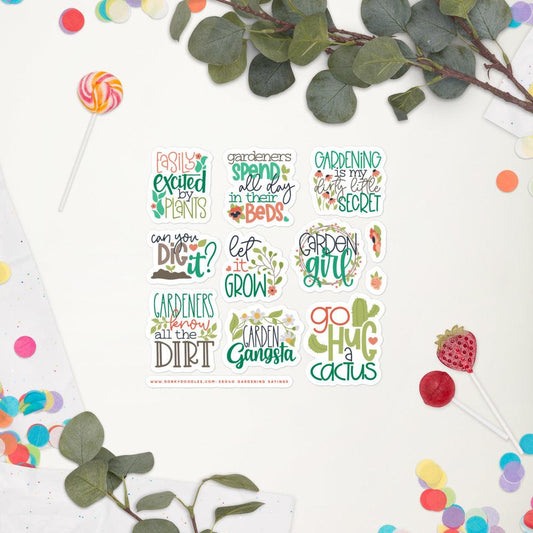 Easily
excited
by
PLANTS
gardeners
SPEND
all day
in their
BEDS.
GARDENING
is my
dirty little
SECRET
can you
DIG
it?
let
it
GROW
GARDEN
girl
GARDENERS
know
all the
DIRT
GARDEN
Gangsta
go
HUG
a
CACTUS